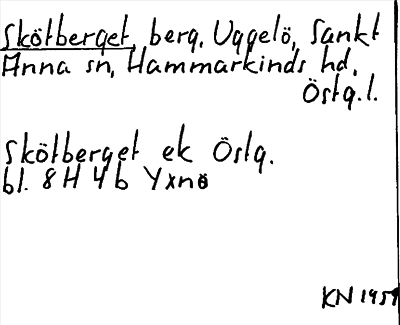 Skötberget, berg, Uggelö, Sankt
Anna sn, Hammarkinds hd,
Östg.l.
Skötberget ek Östg.
bl. 8H 4b Yxnö
KN 1959